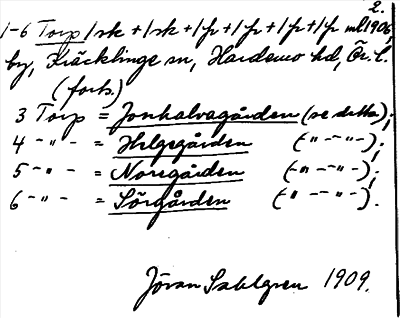 2.
1-6 Torp 1/sk + 1/sk + 1/p + 1/p + 1/p + 1/p ml 1906,
by, Kräcklinge sn, Hardemo hd, Ör. l.
(forts.)
3 Torp = Jonhalvagården (se detta);
4 -"- = Helgegården (-"- -"-);
5 -"- = Noregården (-"- -"-);
6 -"- = Sörgården (-"- -"-).
Jöran Sahlgren 1909.